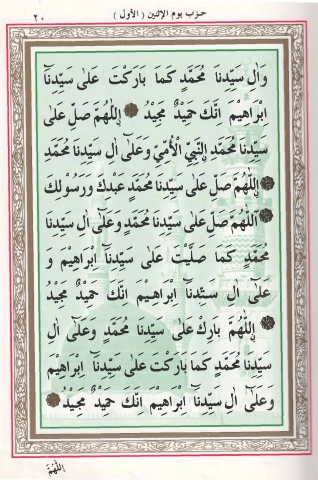 حزب يوم الإثنين (الأول) ٢٠
وَاٰلِ سَيِّدِنَا مُحَمَّدٍ كَمَا بَارَكْتَ عَلٰى سَيِّدِنَآ
اِبْرَاهِيمَ اِنَّكَ حَمِيدٌ مَجِيدٌ اَللّٰهُمَّ صَلِّ عَلٰى
سَيِّدِنَا مُحَمَّدٍ النَّبِيِّ الْأُمِّيِّ وَعَلٰٓى اٰلِ سَيِّدِنَا مُحَمَّدٍ
اَللّٰهُمَّ صَلِّ عَلٰى سَيِّدِنَا مُحَمَّدٍ عَبْدِكَ وَرَسُولِكَ
اَللّٰهُمَّ صَلِّ عَلٰى سَيِّدِنَا مُحَمَّدٍ وَعَلٰٓى اٰلِ سَيِّدِنَا
مُحَمَّدٍ كَمَا صَلَّيْتَ عَلٰى سَيِّدِنَآ اِبْرَاهِيمَ وَ
عَلٰٓى اٰلِ سَيِّدِنَآ اِبْرَاهِيمَ اِنَّكَ حَمِيدٌ مَجِيدٌ
اَللّٰهُمَّ بَارِكْ عَلٰى سَيِّدِنَا مُحَمَّدٍ وَعَلٰٓى اٰلِ
سَيِّدِنَا مُحَمَّدٍ كَمَا بَارَكْتَ عَلٰى سَيِّدِنَآ اِبْرَاهِيمَ
وَعَلٰٓى اٰلِ سَيِّدِنَآ اِبْرَاهِيمَ اِنَّكَ حَمِيدٌ مَجِيدٌ
اَللّٰهُمَّ